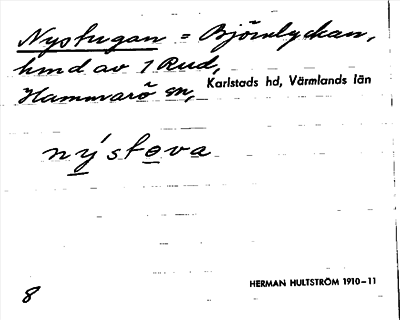 Nystugan = Björnlyckan,
hmd av 1 Rud,
Hammarö sn, Karlstads hd, Värmlands län
nýstova
8 HERMAN HULTSTRÖM 1910–11